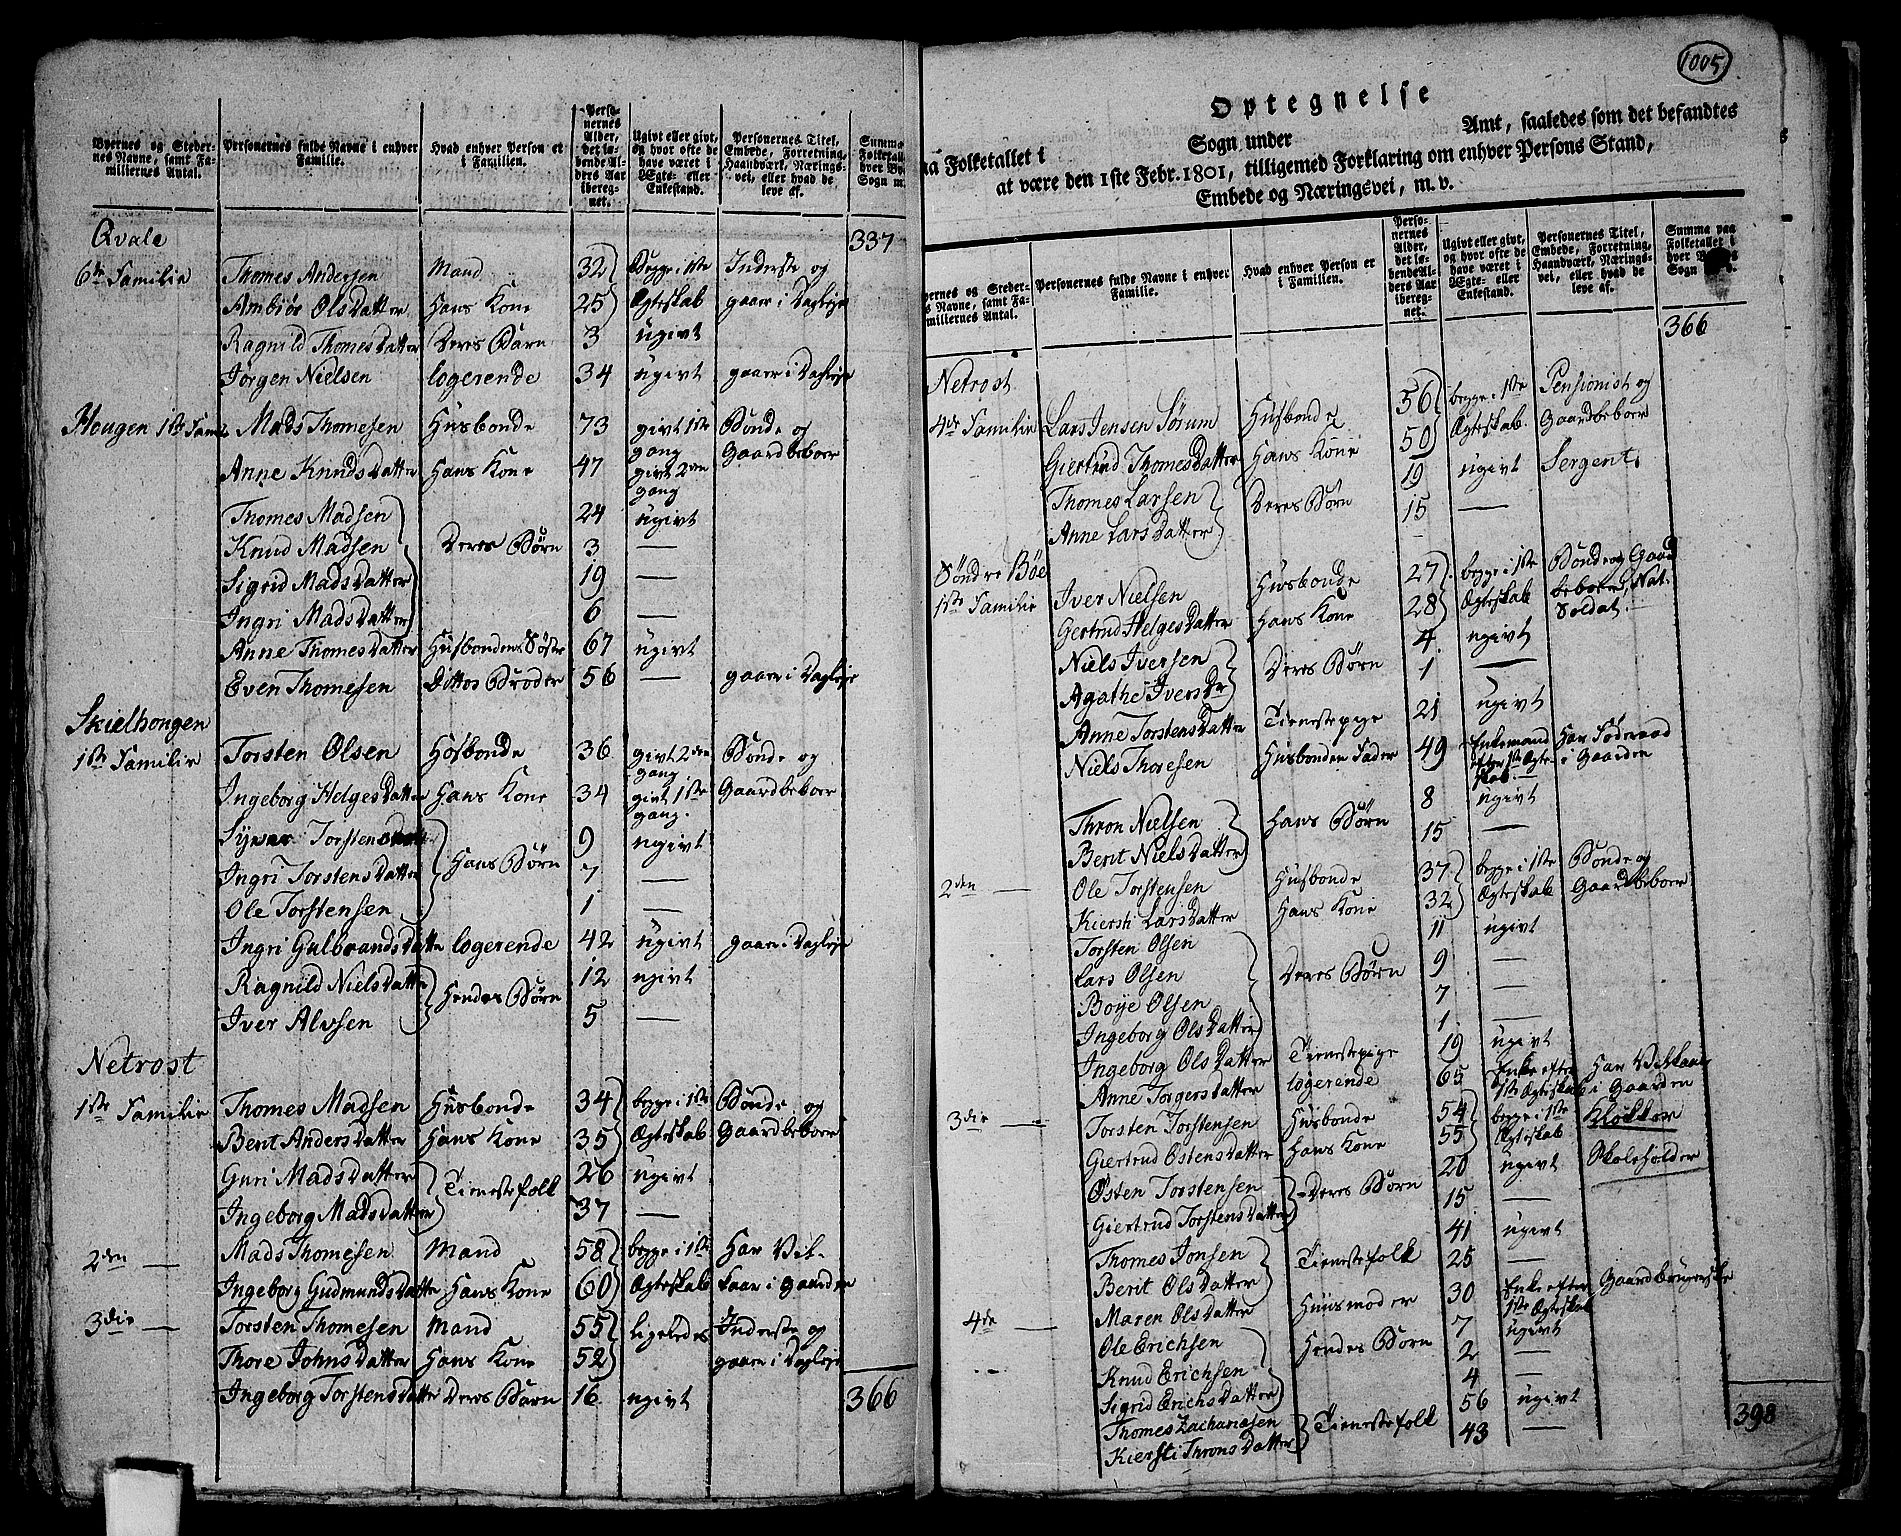 Byernes og Steder-
nes Navne, samt Fa-
miliernes Antal.
Personernes fulde Navne i enhver
Familie.
Hvad enhver Person er
i Familien.
Perso-
nernes
Alder,
det lø-
bende Al-
ders Aar
ibereg-
net.
Ugivt eller givt,
og hvor ofte de
have været i
Ægte- eller
Enkestand.
Personernes Titel,
Embede, Forretning,
Haandværk, Nærings-
vei, eller hvad de
leve af.
Summa
Folketallet
hver By
Sogn
337
Qvale
6te Familie Thomes Andersen Mand 32 Begge i 1ste Inderste og
Ambiør OlsDatter Hans Kone 25 Ægteskab gaaer i Dagleje
Ragnild ThomesDatter Deres Barn 3 ugivt
Jørgen Nielsen logerende 34 ugivt gaaer i Dagleje
Hougen 1ste Fam: Mads Thomesen Husbonde 73 givt 1ste gang Bonde og
Anne KnudsDatter Hans Kone 47 givt 2den gang Gaardbeboer
Thomes Madsen 24 ugivt
Knud Madsen Deres Børn 3 —
Sigrid MadsDatter 19 —
Ingri MadsDatter 6 —
Anne ThomesDatter Husbondens Søster 67 ugivt
Even Thomesen Dittos Broder 56 — gaaer i Dagleje
Skielhougen
1ste Familie Torsten Olsen Hosbonde 36 givt 2den gang Bonde og
Ingeborg HelgesDatter Hans Kone 34 givt 1ste gang. Gaardbeboer
Torstens 9 ugivt
Ingri TorstensDatter Hans Børn 7 —
Ole Torstensen 1 —
Ingri GulbrandsDatter logerende 42 ugivt gaaer i Dagleje
Ragnild NielsDatter Hendes Børn 12 ugivt
Iver Alvsen 5 —
Netrost
1ste Familie Thomes Madsen Husbonde 34 begge i 1ste Bonde og
Berit AndersDatter Hans Kone 35 Ægteskab Gaardbeboer
Guri MadsDatter Tienestefolk 26 ugivt
Ingeborg MadsDatter 37 —
2den — Mads Thomesen Mand 58 begge i 1ste Har Vil-
Ingeborg GudmundsDatter Hans Kone 60 Ægteskab kaar i Gaarden
3die — Torsten Thomesen Mand 55 ligeledes Inderste og
Thore JohnsDatter Hans Kone 52 gaaer i Dagleje
Ingeborg TorstensDatter Deres Barn 16 ugivt 366
1005
Optegnelse
Folketallet i Sogn under Amt, saaledes som det befandtes
at være den 1ste Febr. 1801, tilligemed Forklaring om enhver Persons Stand,
Embede og Næringsvei, m. v.
ernes og Steder-
s Navne, samt Fa-
miliernes Antal.
Personernes fulde Navne i enhver
Familie.
Hvad enhver Person er
i Familien.
Perso-
nernes
Alder,
det lø-
bende Al-
ders Aar
ibereg-
net.
Ugivt eller givt,
og hvor ofte de
have været i
Ægte- eller
Enkestand.
Personernes Titel,
Embede, Forretning,
Haandværk, Nærings-
vei, eller hvad de
leve af.
Summa paa
Folketallet i
hver
Sogn
366
Netrost
4de Familie Lars Jensen Sørum Husbonde 56 begge i 1ste Pensionist og
Giertrud ThomesDatter Hans Kone 50 Ægteskab. Gaardbeboer
Thomes Larsen Deres Børn 19 ugivt Sergent
Anne LarsDatter 15 —
Søndre Böe
1ste Familie Iver Nielsen Husbonde 27 begge i 1ste Bonde og Gaard
Gertrud HelgesDatter Hans Kone 28 Ægteskab beboer, Nat. Soldat.
Niels Iversen Deres Børn 4 ugivt
Agathe Ivers Dr 1 —
Anne TorstensDatter Tienestepige 21 ugivt
Niels Thoresen Husbonden Fader 49 Enkemand efter 1ste Ægteskab Har Föderaad i Gaarden
Thron Nielsen Hans Børn 8 ugivt
Berit NielsDatter 15 —
2den — Ole Torstensen Husbonde 37 begge i 1ste Bonde og
Kiersti LarsDatter Hans Kone 32 Ægteskab Gaardbeboer
Torsten Olsen 11 ugivt
Lars Olsen Deres Børn 9 —
Boye Olsen 7 —
Ingeborg OlsDatter 1 —
Ingeborg OlsDatter Tienestepige 19 ugivt
Anne TorgersDatter logerende 65 Enke efter 1ste Ægteskab Har Vilkaar i Gaarden
3die — Torsten Torstensen Husbonde 54 begge i 1ste Klokker
Giertrud OstensDatter Hans Kone 55 Ægteskab
Østen Torstensen Deres Børn 20 ugivt Skoleholder
Giertrud TorstensDatter 15 —
Thomes Jonsen Tienestefolk 41 ugivt
Berit OlsDatter 25 —
4de — Maren OlsDatter Huusmoder 30 Enke efter 1ste Ægteskab Gaardbrugerske
Ole Erichsen Hendes Børn 7 ugivt
Knud Erichsen 2 —
Sigrid ErichsDatter 4 —
Thomes Zachariasen Tienestefolk 56 ugivt
Kiersti ThronsDatter 43 —
398